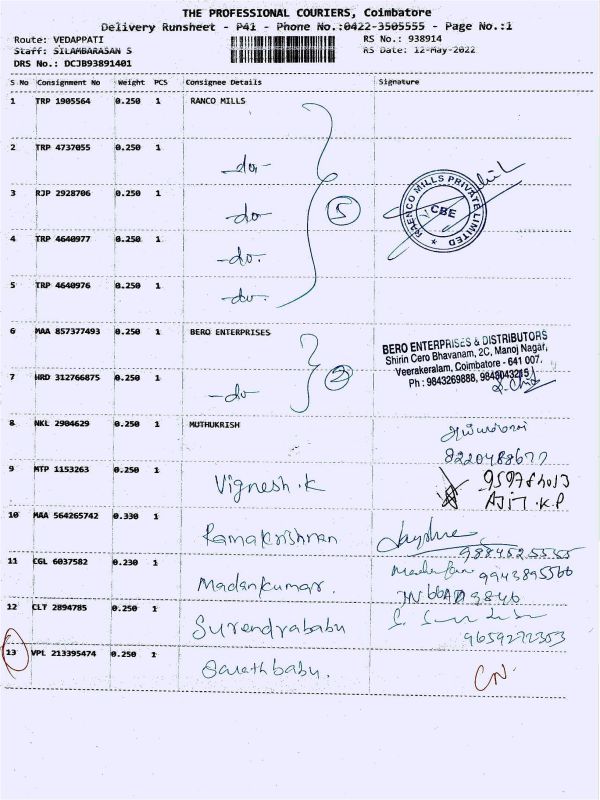 THE PROFESSIONAL COURIERS, Coimbatore
Delivery Runsheet - P41 - Phone No.:0422-3505555 - Page No.:1
Route: VEDAPPATI RS No.: 938914
Staff: SILAMBARASAN S RS Date: 12-May-2022
DRS No.: DCJB93891401
S No Consignment No Weight PCS Consignee Details Signature
1 TRP 1905564 0.250 1 RANCO MILLS
2 TRP 4737055 0.250 1 -do-
RAENCO MILLS PRIVATE LIMITED
CBE
3 RJP 2928706 0.250 1 -do- 5
4 TRP 4640977 0.250 1 -do-
5 TRP 4640976 0.250 1 -do-
6 MAA 857377493 0.250 1 BERO ENTERPRISES
BERO ENTERPRISES & DISTRIBUTORS
Shirin Cero Bhavanam, 2C, Manoj Nagar,
Veerakeralam, Coimbatore - 641 007.
Ph : 9843269888, 9843043215
7 HRD 312766875 0.250 1 -do- 2
8 NKL 2904629 0.250 1 MUTHUKRISH
8220488677
9 MTP 1153263 0.250 1 Vignesh.K
AJIT.K.P
10 MAA 564265742 0.330 1 Ramakrishnan
9884525555
11 CGL 6037582 0.230 1 Madankumar.
9943895566
12 CLT 2894785 0.250 1 Surendrababu
9659272353
13 VPL 213395474 0.250 1 Sarathbabu.
CN.